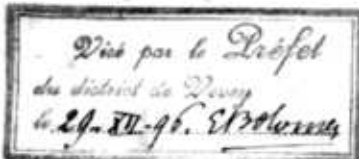 Visé par le Préfet
du district de Vevey
le 29-XII-96.